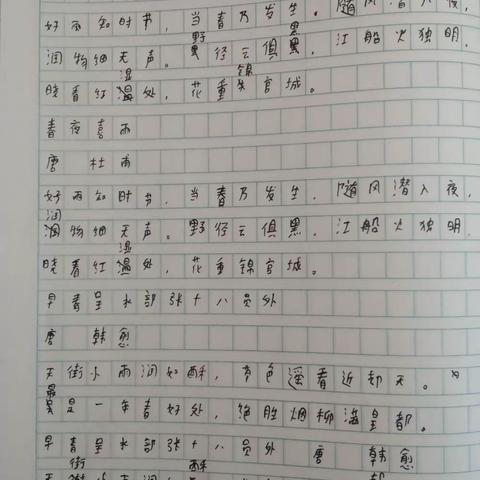 好雨知时节，当春乃发生。随风潜入夜，
野 黑
润物细无声。野径云俱黑，江船火独明。
湿 锦
晓看红湿处，花重锦官城。
春夜喜雨
唐 杜甫
好雨知时节，当春乃发生，随风潜入夜，
润
润物细无声。野径云俱黑，江船火独明，
湿
晓看红湿处，花重锦官城。
早春呈水部张十八员外
唐 韩愈
天街小雨润如酥，草色遥看近却无。
最
最是一年春好处，绝胜烟柳满皇都。
早春呈水部张十八员外 唐 韩愈
街 酥 却
天街小雨润如